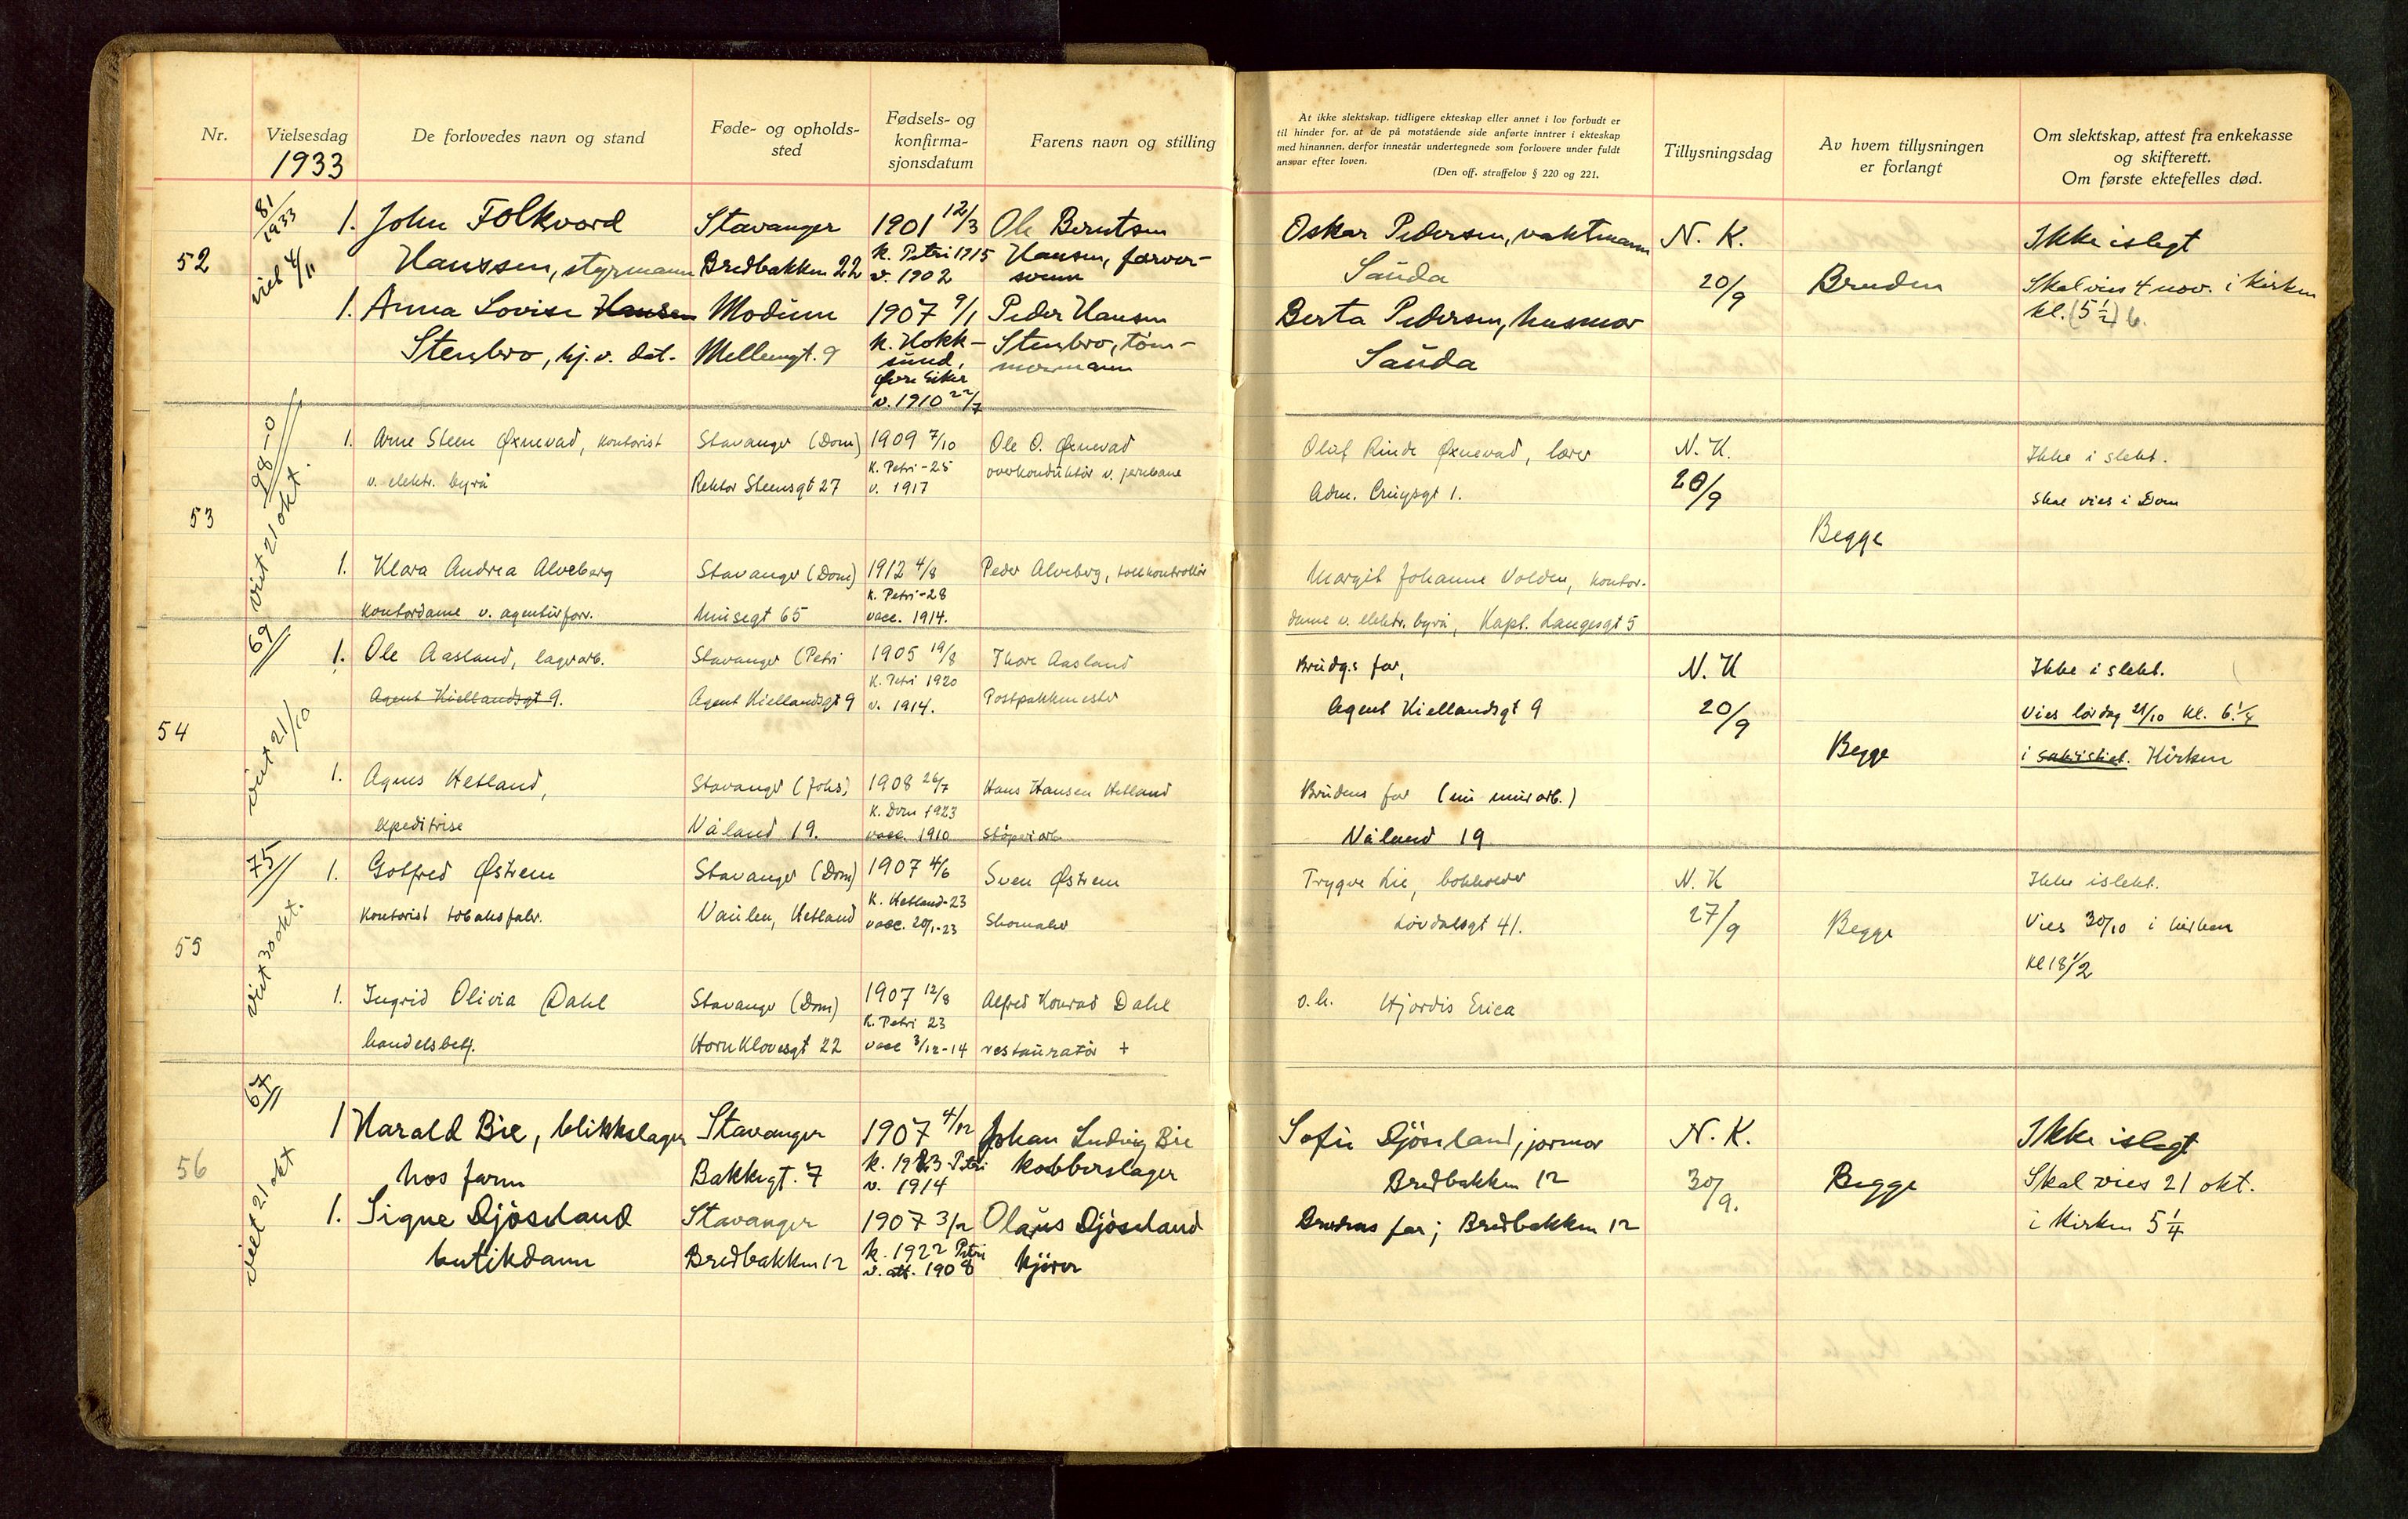 Nr.
Vielsesdag
1933
De forlovedes navn og stand
Føde- og opholds-
sted
Fødsels- og
konfirma-
sjonsdatum
Farens navn og stilling
At ikke slektskap, tidligere ekteskap eller annet i lov forbudt er
til hinder for, at de på motstående side anførte inntrer i ekteskap
med hinannen, derfor innestår undertegnede som forlovere under fuldt
ansvar efter loven.
(Den off. straffelov § 220 og 221.
Tillysningsdag
Av hvem tillysningen
er forlangt
Om slektskap, attest fra enkekasse
og skifterett.
Om første ektefelles død.
52
81/1933
viet 4/11
1. John Folkvord
Hanssen, styrmann
Stavanger
Bredbakken 22
1901 12/3
k. Petri 1915
v. 1902
Ole Berntsen
Hansen, farver-
svenn
1. Anna Lovise Hansen
Stenbro, hj.v. det.
Modum
Mellemgt. 9
1907 9/1
k. Hokk-
sund,
Øvre Eiker
v. 1910 22/7
Peder Hansen
Stenbro, tøm-
mermann
Oskar Pedersen, vaktmann
Sauda
Berta Pedersen, husmor
Sauda
N. K.
20/9
Bruden
Ikke i slegt
Skal vies 4 nov. i kirken
kl. (5 ½) 6.
53
98-0
viet 21 okt.
1. Arne Steen Øxnevad, kontorist
v. elektr. byrå
Stavanger (Dom)
Rektor Steensgt 27
1909 7/10
K. Petri-25
v. 1917
Ole O. Øxnevad
overkonduktør v. jernbane
1. Klara Andrea Alveberg
kontordame v. agenturforr.
Stavanger (Dom)
Musegt 65
1912 4/8
K. Petri-28
vacc. 1914.
Peder Alveberg, tollkontrollør
Oluf Rinde Øxnevad, lærer
Adm. Cruysgt 1.
Margit Johanne Volden, kontor-
dame v. elektr. byrå, Kapt. Langesgt 5
N. K.
20/9
Begge
Ikke i slekt.
Skal vies i Dom
54
69
viet 21/10
1. Ole Aasland, lagerarb.
Agent Kiellandsgt 9.
Stavanger (Petri
Agent Kiellandsgt 9
1905 19/8
K. Petri 1920
v. 1914.
Thore Aasland
Postpakkmester
1. Agnes Hetland,
expeditrise
Stavanger (Johs)
Våland 19.
1908 26/7
K. Dom 1923
vacc. 1910
Hans Hansen Hetland
støperiarb.
Brudg.s far,
Agent Kiellandsgt 9
Brudens far (nu murarb.)
Våland 19
N. K
20/9
Begge
Ikke i slekt.
Vies lørdag 21/10 kl. 6 ¼
i sakristiet. Kirken
55
75
viet 30 okt.
1. Gotfred Østrem
kontorist tobaksfabr.
Stavanger (Dom)
Vaulen, Hetland
1907 4/6
K. Hetland-23
vacc. 20/1-23
Sven Østrem
Skomaker
1. Ingrid Olivia Dahl
handelsbetj.
Stavanger (Dom)
Hornklovesgt 22
1907 12/8
K. Petri 23
vacc 3/12-14
Alfred Konrad Dahl
restauratør +
Trygve Lie, bokholder
Løvdalsgt 41.
o.h. Hjørdis Erica
N. K
27/9
Begge
Ikke i slekt.
Vies 30/10 i kirken
Kl 18 ½
56
67
viet 21 okt
1 Harald Bie, blikkslager
hos faren
Stavanger
Bakkegt. 7
1907 4/12
k. 1923 Petri
v. 1914
Johan Ludvig Bie
kobberslager
1. Signe Djøseland
butikdame
Stavanger
Bredbakken 12
1907 3/12
k. 1922 Petri
v. att. 1908
Olaus Djøseland
kjører
Sofie Djøseland, jormor
Bredbakken 12
Brudens far; Bredbakken 12
N. K.
30/9.
Begge
Ikke i slegt
Skal vies 21 okt.
i kirken 5 ¼